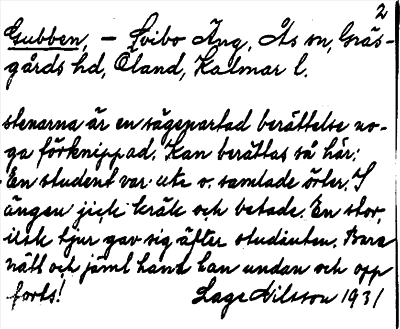 2
Gubben, – Svibo Äng, Ås sn, Gräs-
gårds hd, Öland, Kalmar l.
stenarna är en sägepartad berättelse no-
ga förknippad. Kan berättas så här:
En student var ute o. samlade örter. I
ängen gick kräk och betade. En stor,
ilsk tjur gav sig äfter studenten. Bara
nätt och jämt hann han undan och opp
forts! Lage Nilsson 1931